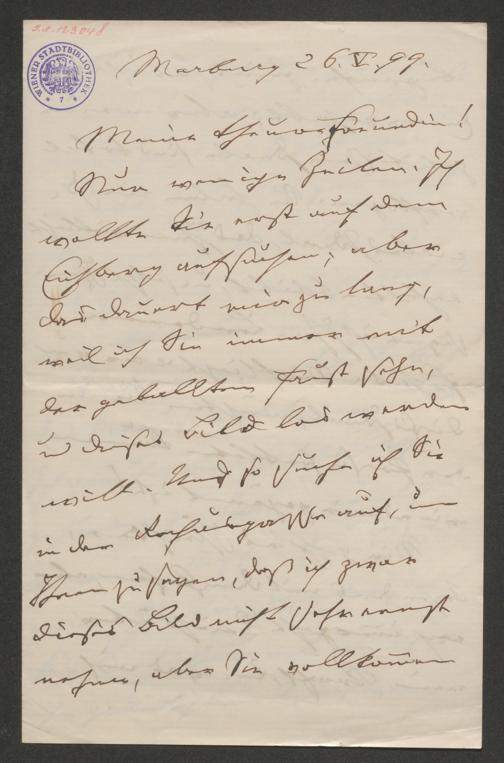 I.N. 123048
WIENER STADTBIBLIOTHEK
* 7 *
Marburg 26. V. 99.
Meine theure Freundin!
Nur wenige Zeilen. Ich
wollte Sie erst auf dem
aufsuchen, aber
das dauert mir zu lang,
weil ich Sie immer mit
der geballten Faust sehe,
u dieses Bild los werden
will. Und so suche ich Sie
in der auf, um
Ihnen zu sagen, daß ich zwar
dieses Bild nicht sehr ernst
nehme, aber Sie vollkom̄en